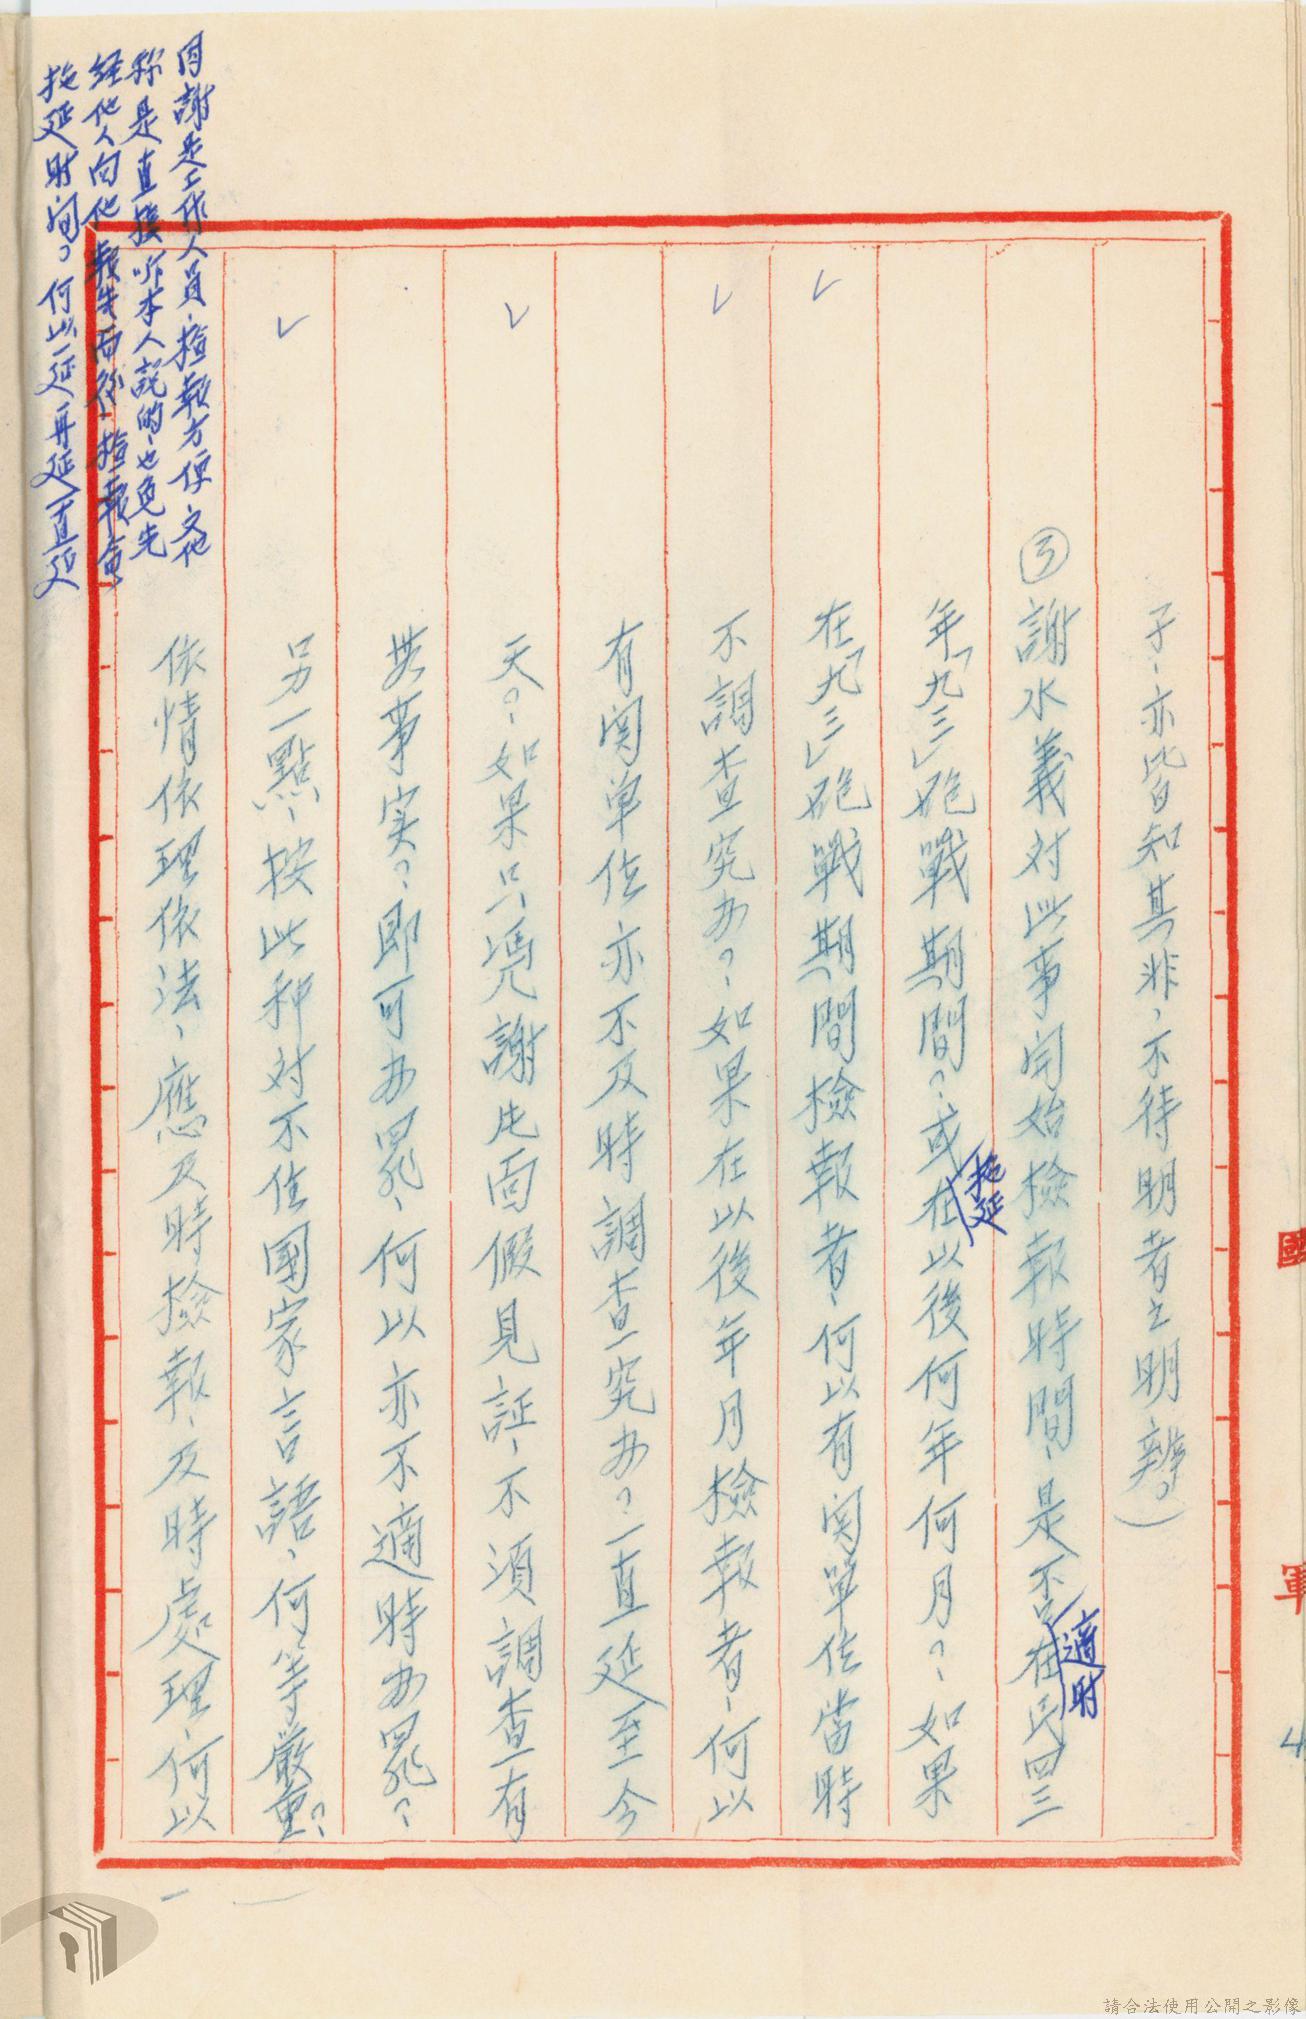 子、亦皆知其非，不待明者之明辨。）
③謝水義对此事開始檢報時間、是否適时在民四三
年「九三」砲戰期間？、或拖延在以後何年何月？、如果
在「九三」砲戰期間檢報者、何以有関單位當時
不調查究办？、如果在以後年月檢報者、何以
有関單位亦不及時調查究办？一直延至今
天。、如果只憑謝片面假見証、不須調查有
無事实？、即可办罪、何以亦不適時办罪？
另一點、按此种对不住國家言語、何等嚴重？
依情依理依法、應及時檢報、及時處理、何以
因謝是工作人員、撿報方便、又他
称是直接听本人説的、也免先
経他人向他報告而後、撿報會
拖延时间。何以一延再延一直延
國
軍
請合法使用公開之影像